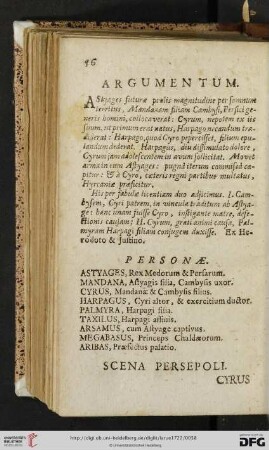 96
ARGUMENTUM.
AStyages futuræ prolis magnitudine per somnum
territus, Mandanam filiam Cambysi, Persici ge-
neris homini, collocaverat: Cyrum, nepotem ex ius
suum, ut primum erat natus, Harpago necandum tra-
diderat: Harpago, quod Cyro pepercisset, filium epu-
landum dederat. Harpagus, diu dissimulato dolore,
Cyrum jam adolescentem in avum solicitat. Movet
arma in eum Astyages: pugnâ iterum commissâ ca-
pitur: & à Cyro, cæteris regni partibus mulctatus,
Hyrcaniæ præficitur.
His per fabulæ licentiam duo adjicimus. I. Cam-
bysem, Cyri patrem, in vincula traditum ab Astya-
ge: hanc unam fuisse Cyro, instigante matre, defe-
ctionis causam: II. Cyrum, grati animi causa, Pal-
myram Harpagi filiam conjugem duxisse. Ex He-
rodoto & Justino.
PERSONÆ.
ASTYAGES, Rex Medorum & Persarum.
MANDANA, Astyagis filia, Cambysis uxor.
CYRUS, Mandanæ & Cambysis filius.
HARPAGUS, Cyri altor, & exercitium ductor.
PALMYRA, Harpagi filia.
TAXILUS, Harpagi affinis.
ARSAMUS, cum Astyage captivus.
MEGABASUS, Princeps Chaldæorum.
ARIBAS, Præfectus palatio.
SCENA PERSEPOLI.
CYRUS
UNIVERSITÄTS-
BIBLIOTHEK
HEIDELBERG
http://digi.ub.uni-heidelberg.de/diglit/larue1723/0038
Gefördert durch
DFG